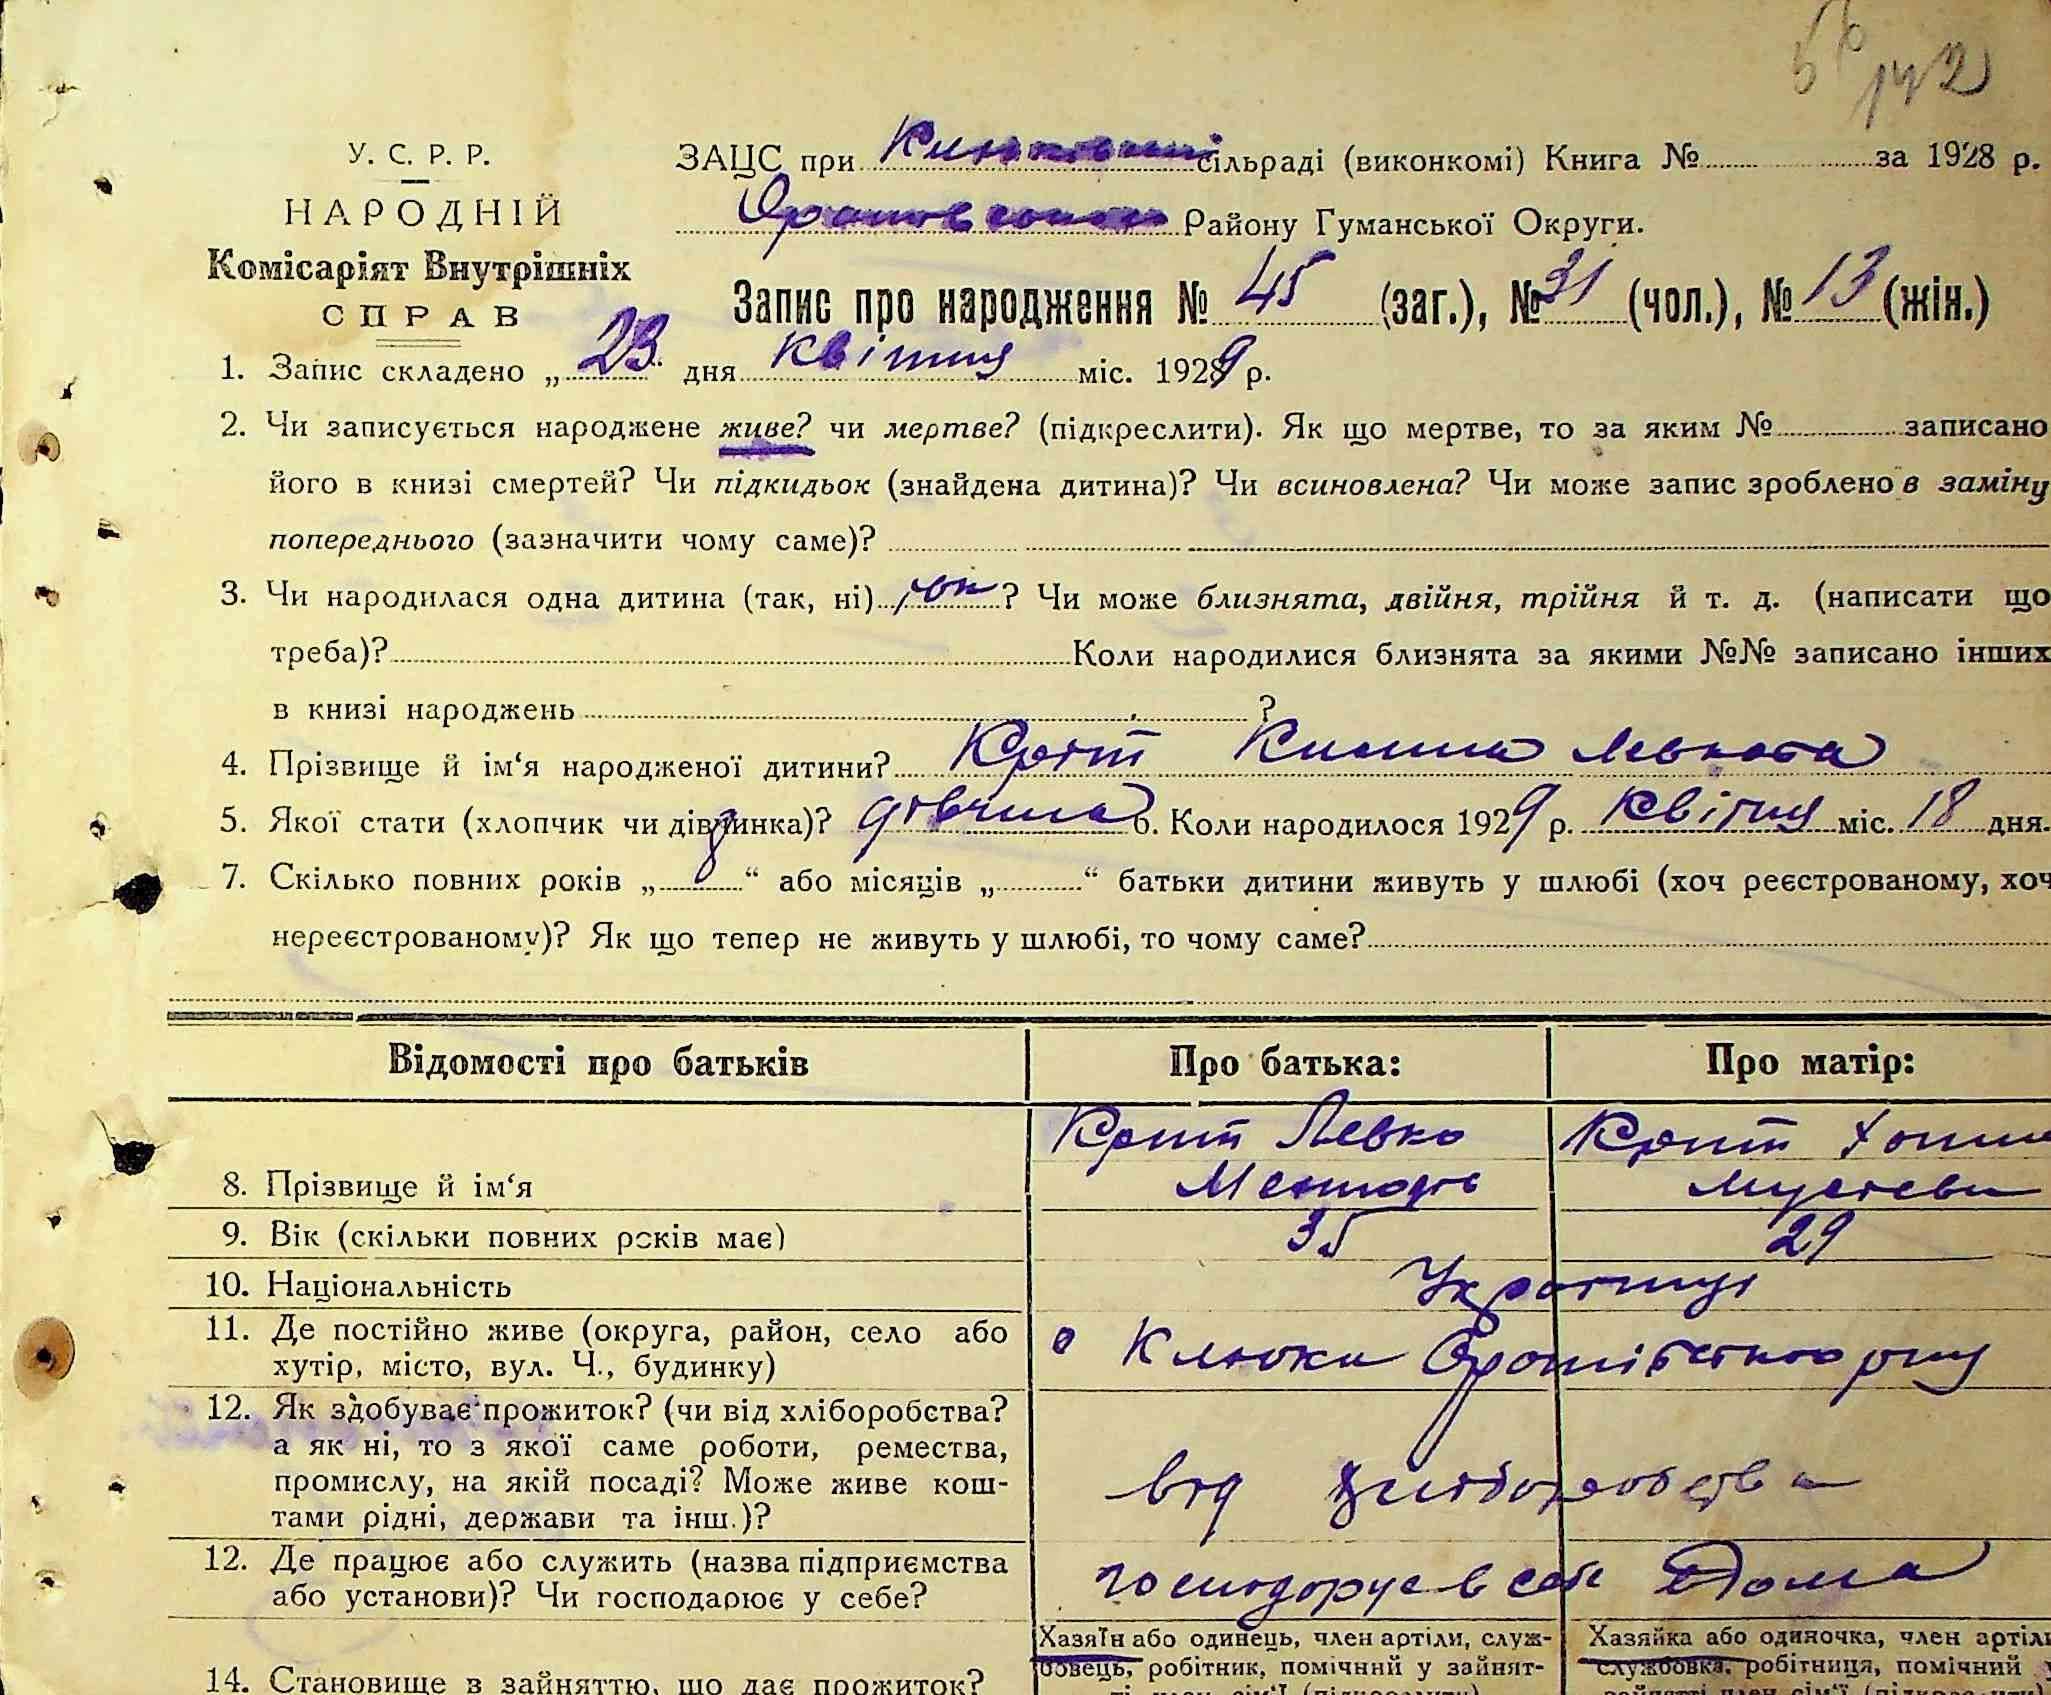 У. С. Р. Р.
НАРОДНІЙ
Комісаріят Внутрішніх
СПРАВ
ЗАЦС при сільраді (виконкомі) Книга № за 1928 р.
Району Гуманської Округи.
Запис про народження № 45 (заг.), № 31 (чол.), № 13 (жін.)
1. Запис складено „ 23 дня квітня міс. 1929 р.
2. Чи записується народжене живе? чи мертве? (підкреслити). Як що мертве, то за яким № записано
його в книзі смертей? Чи підкидьок (знайдена дитина)? Чи всиновлена? Чи може запис зроблено в заміну
попереднього (зазначити чому саме)?
3. Чи народилася одна дитина (так, ні) так? Чи може близнята, двійня, трійня й т. д. (написати що
треба)? Коли народилися близнята за якими №№ записано інших
в книзі народжень ?
4. Прізвище й ім‘я народженої дитини? Левкова
5. Якої стати (хлопчик чи дівчинка)? дівчина 6. Коли народилося 1929 р. квітня міс. 18 дня.
7. Скілько повних років „ 8 “ або місяців „ “ батьки дитини живуть у шлюбі (хоч реєстрованому, хоч
нереєстрованому)? Як що тепер не живуть у шлюбі, то чому саме?
Відомості про батьків Про батька: Про матір:
8. Прізвище й ім‘я Левко
9. Вік (скільки повних років має) 35 29
10. Національність Українці
11. Де постійно живе (округа, район, село або
хутір, місто, вул. Ч., будинку) Клюки
12. Як здобуває прожиток? (чи від хліборобства?
а як ні, то з якої саме роботи, ремества,
промислу, на якій посаді? Може живе кош-
тами рідні, держави та інш.)? від хліборобства
12. Де працює або служить (назва підприємства
або установи)? Чи господарює у себе? господарує в себе Дома
14. Становище в зайняттю, що дає прожиток?
Хазяїн або одинець, член артіли, служ-
бовець, робітник, помічний у зайнят-
Хазяйка або одиночка, член артіли
службовка, робітниця, помічний у